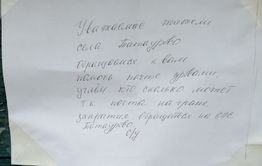 Уважаемые жители
села Батаурово
обращаемся к вам
помочь почте дровами,
углём кто сколько может
т.к почта на грани
закрытия обращаться на
Батаурово.
с/у